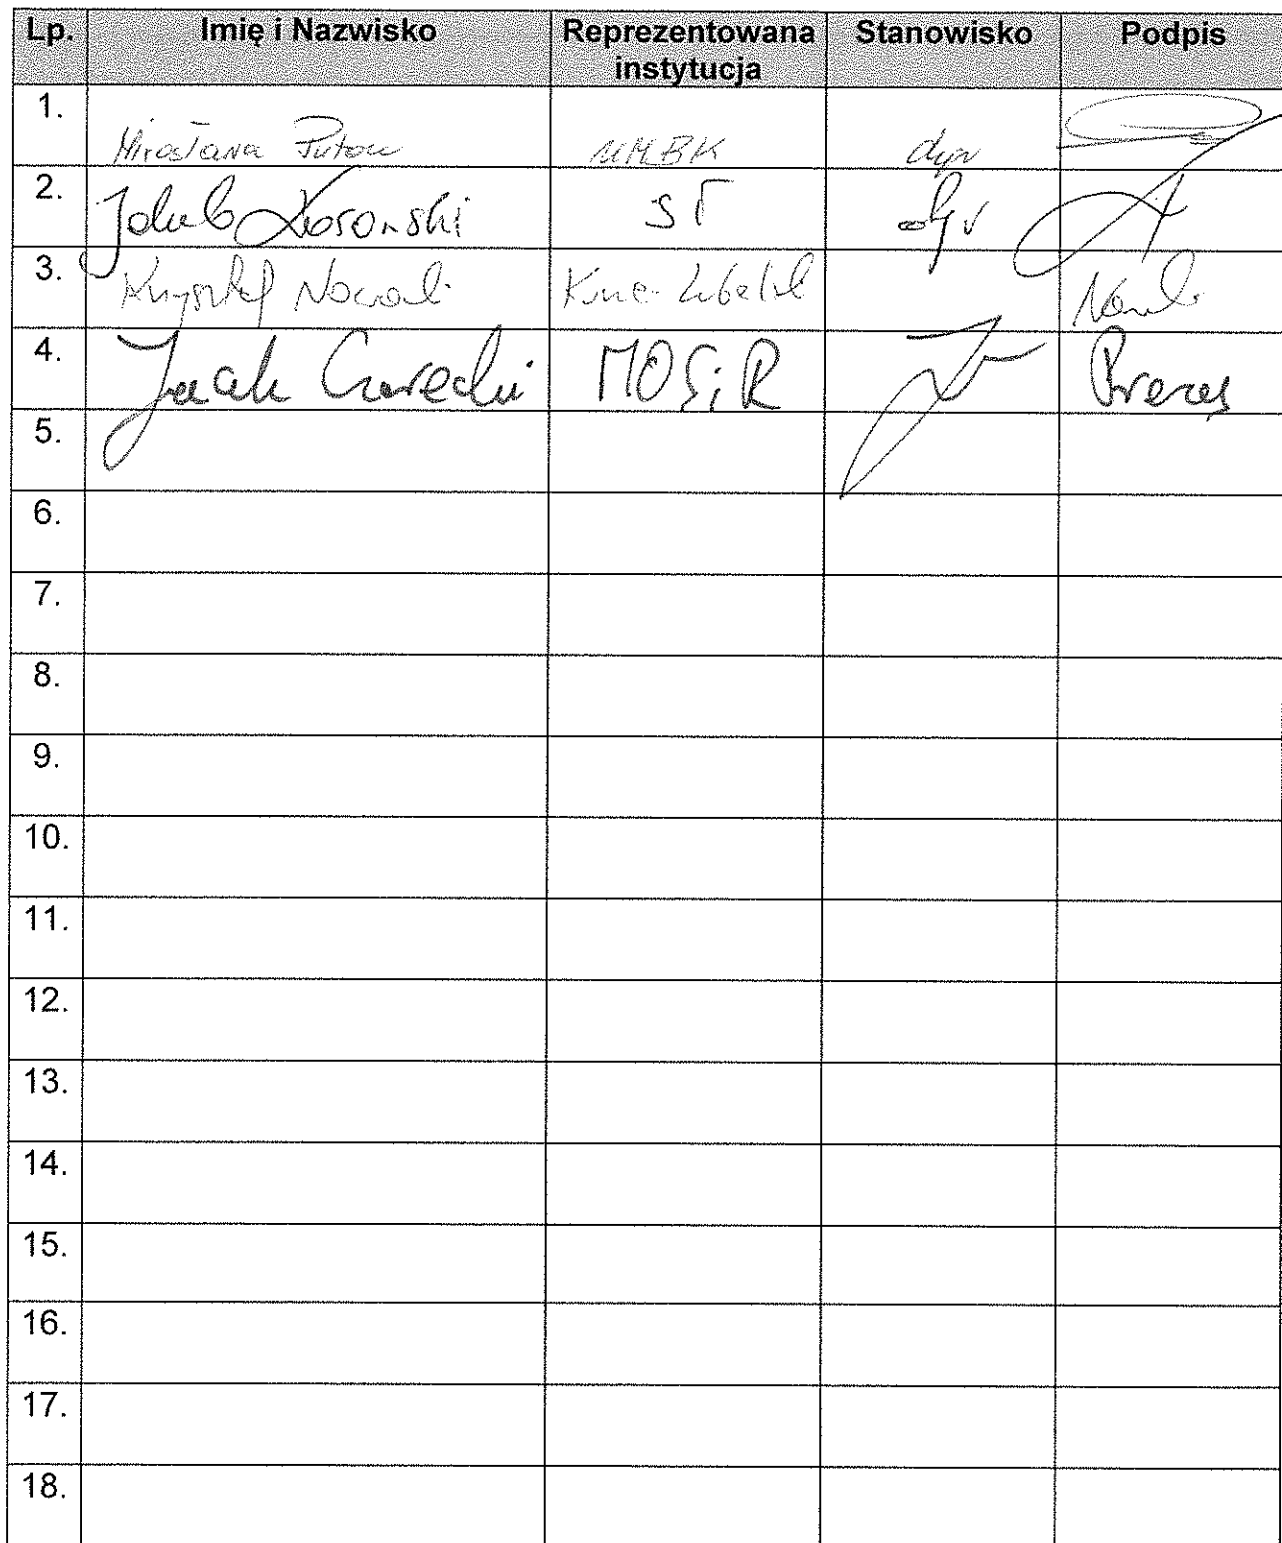 Lp. Imię i Nazwisko Reprezentowana instytucja Stanowisko Podpis
1. Mirosława MMBK dyr
2. Jakub Kosowski ST dyr
3. Krzysztof Nowak
4. Jacek Czarecki MOSiR Prezes
5.
6.
7.
8.
9.
10.
11.
12.
13.
14.
15.
16.
17.
18.